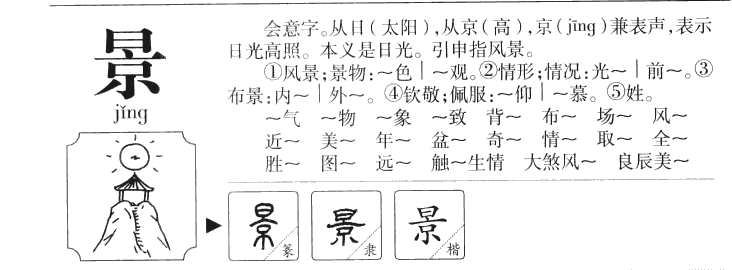 景
jǐng
会意字。从日（太阳），从京（高），京（jīng）兼表声，表示
日光高照。本义是日光。引申指风景。
①风景；景物：～色｜～观。②情形；情况：光～｜前～。③
布景：内～｜外～。④钦敬；佩服：～仰｜～慕。⑤姓。
～气 ～物 ～象 ～致 背～ 布～ 场～ 风～
近～ 美～ 年～ 盆～ 奇～ 情～ 取～ 全～
胜～ 图～ 远～ 触～生情 大煞风～ 良辰美～
景 篆 景 隶 景 楷